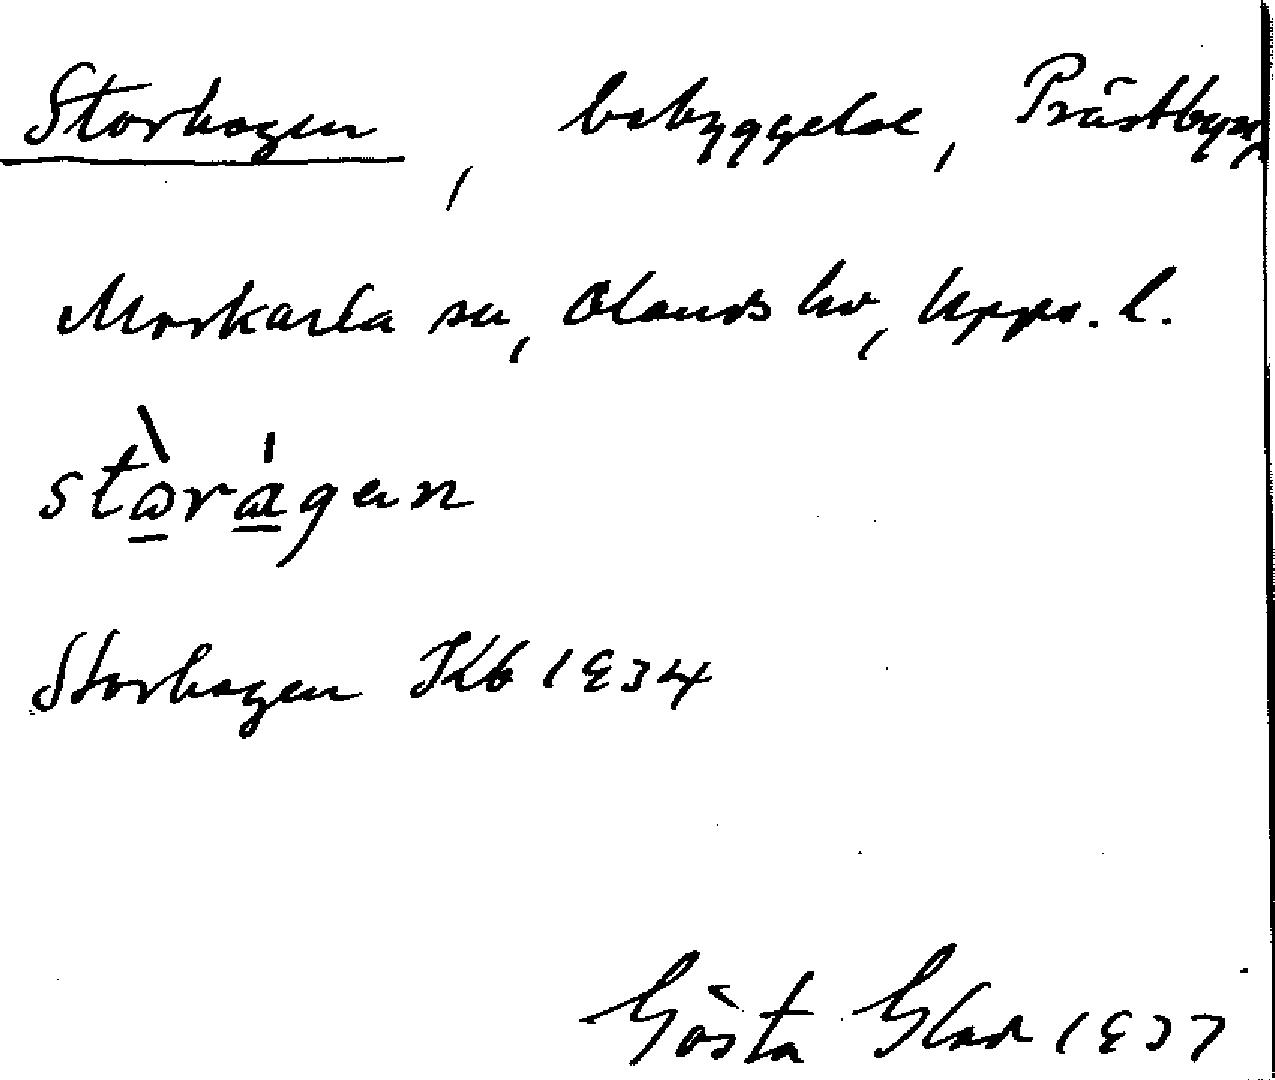 Storhagen, bebyggelse, Prästbyn,
Morkarla sn, Olands hd, Upps. l.
stòrágen
Storhagen Kb 1934
Gösta Glad 1937